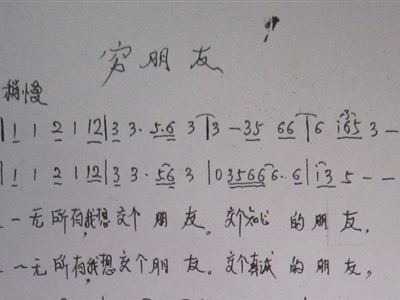 穷朋友
稍慢
| 1 1 2 1 12 | 3 3· 5·6 3 | 3 — 35 66 | 6 i65 3 —
| 1 1 2 1 12 | 3 3· 56 3 | 0 35666· 6 | i3 5 — —
一无所有我想交个朋友。交个知心的朋友,
一无所有我想交个朋友。交个真诚的朋友,